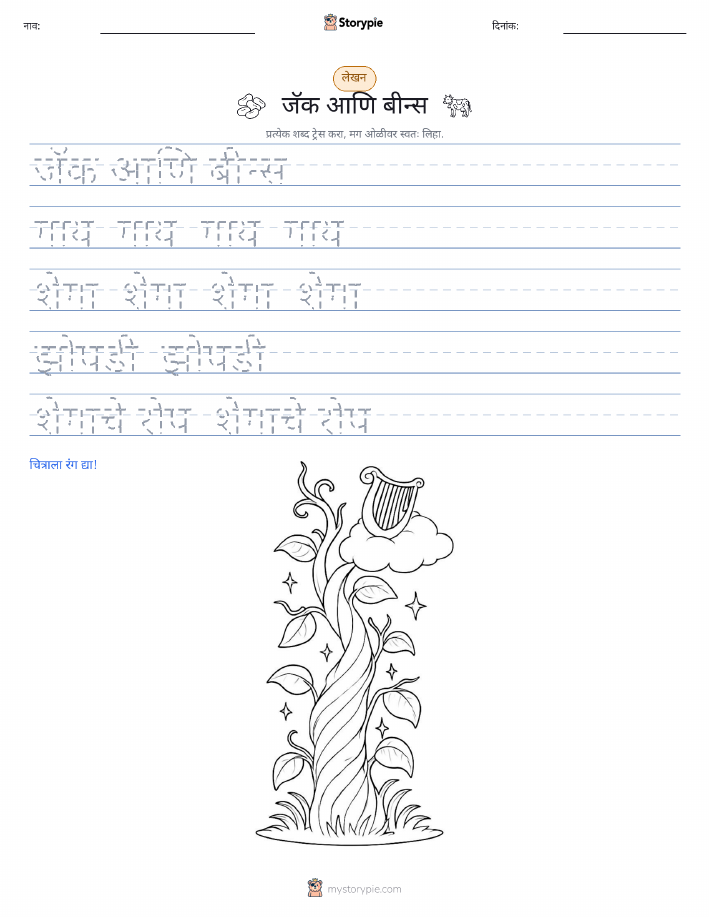 नाव:
Storypie
दिनांक:
लेखन
जॅक आणि बीन्स
प्रत्येक शब्द ट्रेस करा, मग ओळीवर स्वतः लिहा.
जॅक आणि बीन्स
गाय गाय गाय गाय
शेंगा शेंगा शेंगा शेंगा
झोपडी झोपडी
शेंगाचे रोप शेंगाचे रोप
चित्राला रंग द्या!
mystorypie.com